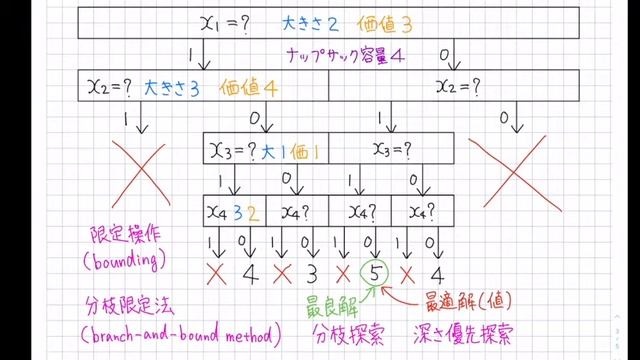 x1=? 大きさ2 価値3
1 ナップサック容量4 0
x2=? 大きさ3 価値4 x2=?
1 0 1 0
x3=? 大1 価1 x3=?
1 0 1 0
x4 3 2 x4? x4? x4?
1 0 1 0 1 0 1 0
× 4 × 3 × 5 × 4
限定操作
(bounding)
最良解 最適解(値)
分枝限定法
(branch-and-bound method) 分枝探索 深さ優先探索